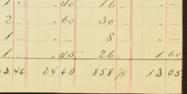 1 . 40 16 -
2 . 60 30 -
1 - 8 -
1 . 45 26 1 60
3 46 24 60 858 13 05